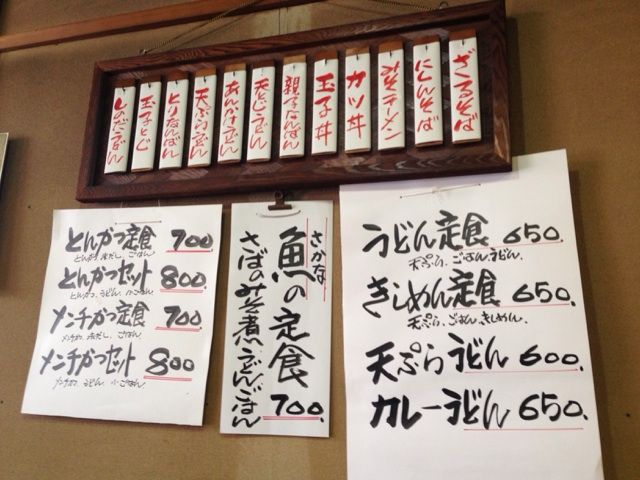 ざるそば
にしんそば
みそラーメン
カツ丼
玉子丼
親子なんばん
天とじうどん
あんかけうどん
天ぷらうどん
とりなんばん
玉子とじ
しのだうどん
とんかつ定食 700.
とんかつ、赤だし、ごはん
とんかつセット 800
とんかつ、うどん、小ごはん
メンチかつ定食 700
メンチかつ、赤だし、ごはん
メンチかつセット 800
メンチかつ、うどん、小ごはん
さかな
魚の定食 700.
さばのみそ煮うどんごはん
うどん定食 650.
天ぷら、ごはん、うどん、
きしめん定食 650.
天ぷら、ごはん、きしめん、
天ぷらうどん 600.
カレーうどん 650.